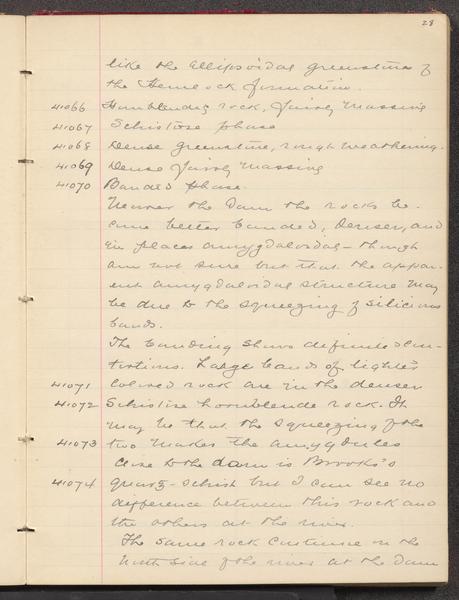 28
like the Ellipsoidal greenstones of
the Hemlock formation.
41066 Hornblendic rock, fairly massive
41067 Schistose phase
41068 Dense greenstone, rough weathering.
41069 Dense fairly massive
41070 Banded phase.
Nearer the Dam the rocks be-
come better banded, denser, and
in places amygdaloidal - though
am not sure but that the appar-
ent amygdaloidal structure may
be due to the squeezing of silicious
bands.
The banding shows definite
Large bands of lighter
41071 colored rock are in the denser
41072 Schistose hornblende rock. It
may be that the squeezing of the
41073 two makes the amygdules
Close to the dam is Brooks's
41074 quartz-schist but I can see no
difference between this rock and
the others at the river.
The same rock continues on the
North side of the river at the Dam